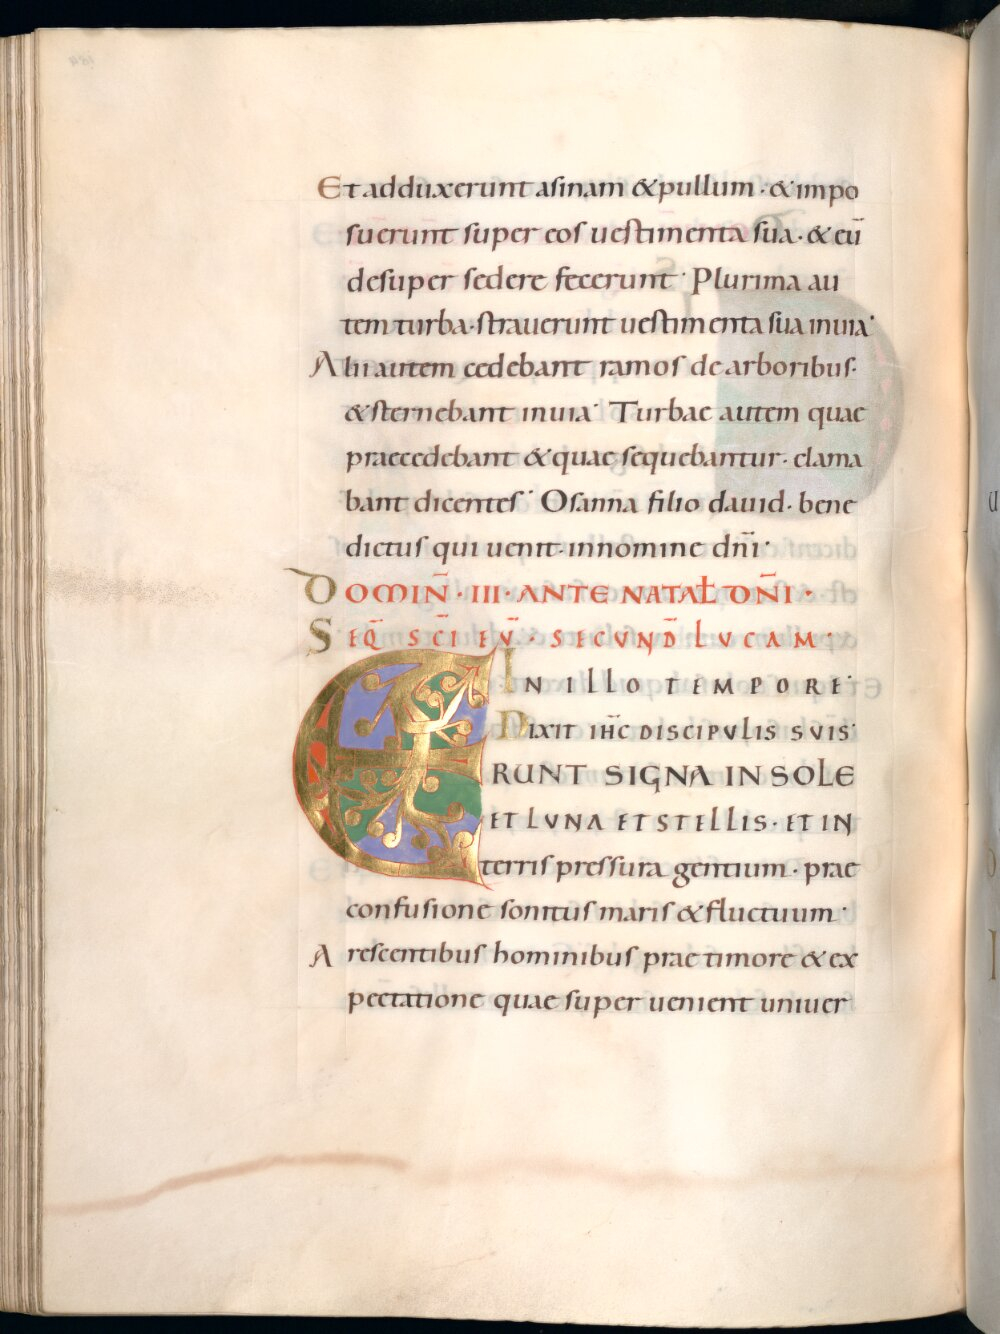 Et adduxerunt asinam & pullum · & impo
suerunt super eos uestimenta sua · & eū
desuper sedere fecerunt · Plurima au
tem turba · strauerunt uestimenta sua inuia ·
Alii autem cedebant ramos de arboribus ·
& sternebant inuia · Turbae autem quae
praecedebant & quae sequebantur · clama
bant dicentes · Osanna filio dauid · bene
dictus qui uenit · innomine dn̄i ·
DOMIN̄ · III · ANTE NATAŁ DN̄I ·
SEQ̄ SC̄I EV̄ · SECVND̄ LVCAM ·
IN ILLO TEMPORE ·
DIXIT IH̄C DISCIPVLIS SVIS ·
ERUNT SIGNA IN SOLE
ET LVNA ET STELLIS · ET IN
terris pressura gentium · prae
confusione sonitus maris & fluctuum ·
Arescentibus hominibus prae timore & ex
pectatione quae super uenient uniuer